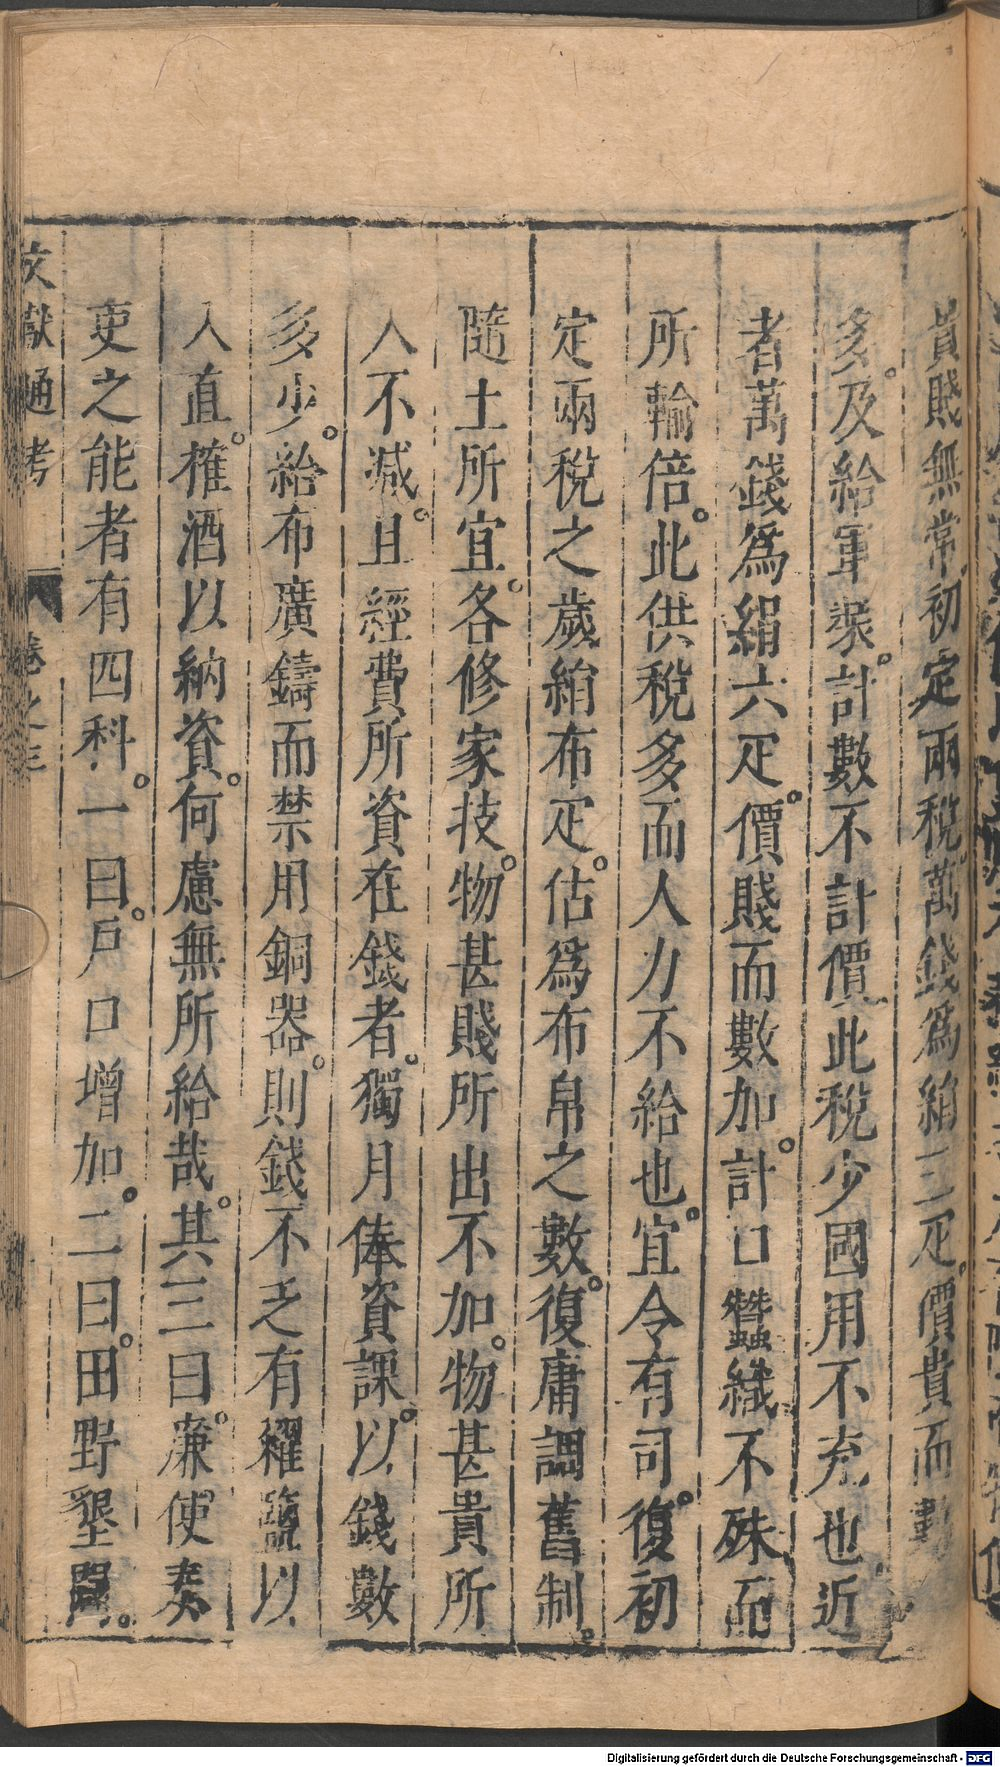 貴賤無常初定兩稅萬錢爲絹三疋價貴而數
多及給軍裝計數不計價此稅少國用不充也近
者萬錢爲絹六疋價賤而數加計口蠶織不殊而
所輸倍此供稅多而人力不給也宜令有司復初
定兩稅之歲絹布疋估爲布帛之數復庸調舊制
隨土所宜各修家技物甚賤所出不加物甚貴所
入不減且經費所資在錢者獨月俸資課以錢數
多少給布廣鑄而禁用銅器則錢不乏有糴鹽以
入直榷酒以納資何慮無所給哉其三曰廉使奏
吏之能者有四科一曰戶口增加二曰田野墾闢
文獻通考 卷之三
Digitalisierung gefördert durch die Deutsche Forschungsgemeinschaft - DFG